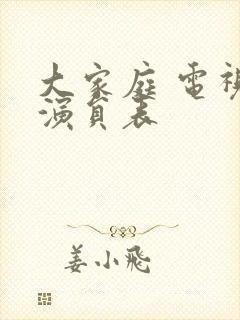 大家庭電視
演員表
姜小飛